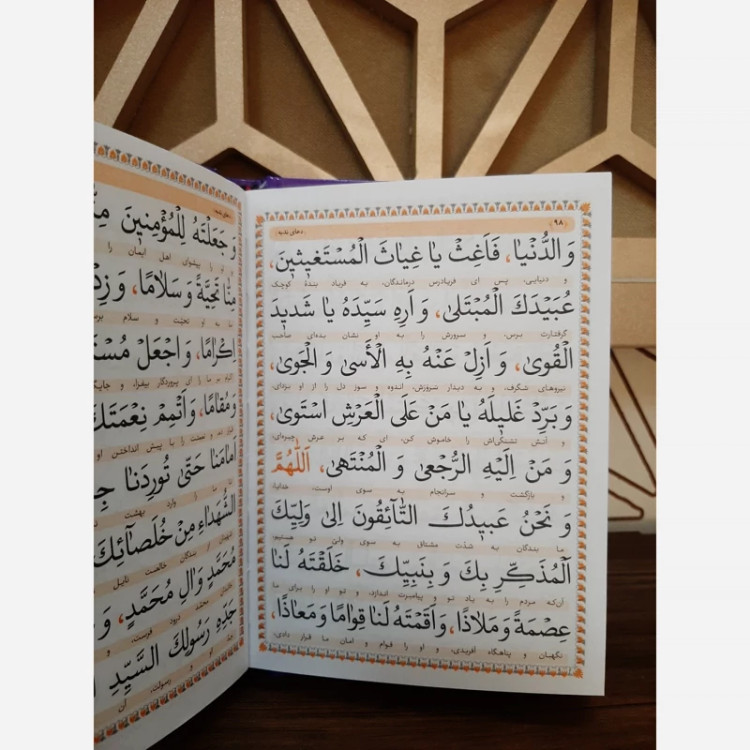 ۹۸
دعای ندبه
وَ الدُّنْیا، فَاَغِثْ یا غِیاثَ الْمُسْتَغیثینَ،
و دنیایی، پس ای فریادرس درماندگان، به فریاد بندهٔ کوچک
عُبَیْدَكَ الْمُبْتَلیٰ، وَ اَرِهِ سَیِّدَهُ یا شَدیدَ
گرفتارت برس، و سرورش را به او نشان بده‌ای صاحب
الْقُویٰ، وَ اَزِلْ عَنْهُ بِهِ الْأَسیٰ وَ الْجَویٰ،
نیروهای شگرف، و به دیدار سرورش، اندوه و سوز دل را از او بزدای،
وَ بَرِّدْ غَلیلَهُ یا مَنْ عَلَی الْعَرْشِ اسْتَویٰ،
و آتش تشنگی‌اش را خاموش کن، ای که بر عرش چیره‌ای،
وَ مَنْ اِلَیْهِ الرُّجْعیٰ وَ الْمُنْتَهیٰ، اَللّٰهُمَّ
و بازگشت و سرانجام به سوی اوست، خدایا،
وَ نَحْنُ عَبیدُكَ التّآئِقُونَ اِلیٰ وَلِیِّكَ
ما بندگان به شدّت مشتاق به سوی ولیّ تو هستیم
الْمُذَكِّرِ بِكَ وَ بِنَبِیِّكَ، خَلَقْتَهُ لَنا
آن‌که مردم را به یاد تو و پیامبرت اندازد، و تو او را برای ما
عِصْمَةً وَ مَلاذًا، وَ اَقَمْتَهُ لَنا قِوامًا وَ مَعاذًا،
نگهبان و پناهگاه آفریدی، و او را قوام و امان ما قرار دادی،
وَ جَعَلْتَهُ لِلْمُؤْمِنینَ
و او را پیشوای اهل ایمان
مِنّا تَحِیَّةً وَ سَلامًا، وَ زِدْ
ما به او تحیّت و سلام
اِكْرامًا، وَ اجْعَلْ
وَ مُقامًا، وَ اَتْمِمْ نِعْمَتَكَ
اَمامَنا حَتّیٰ تُورِدَنا
الشُّهَداءِ مِنْ خُلَصائِكَ
مُحَمَّدٍ وَ الِ مُحَمَّدٍ، وَ
جَدِّهِ رَسُولِكَ السَّیِّدِ